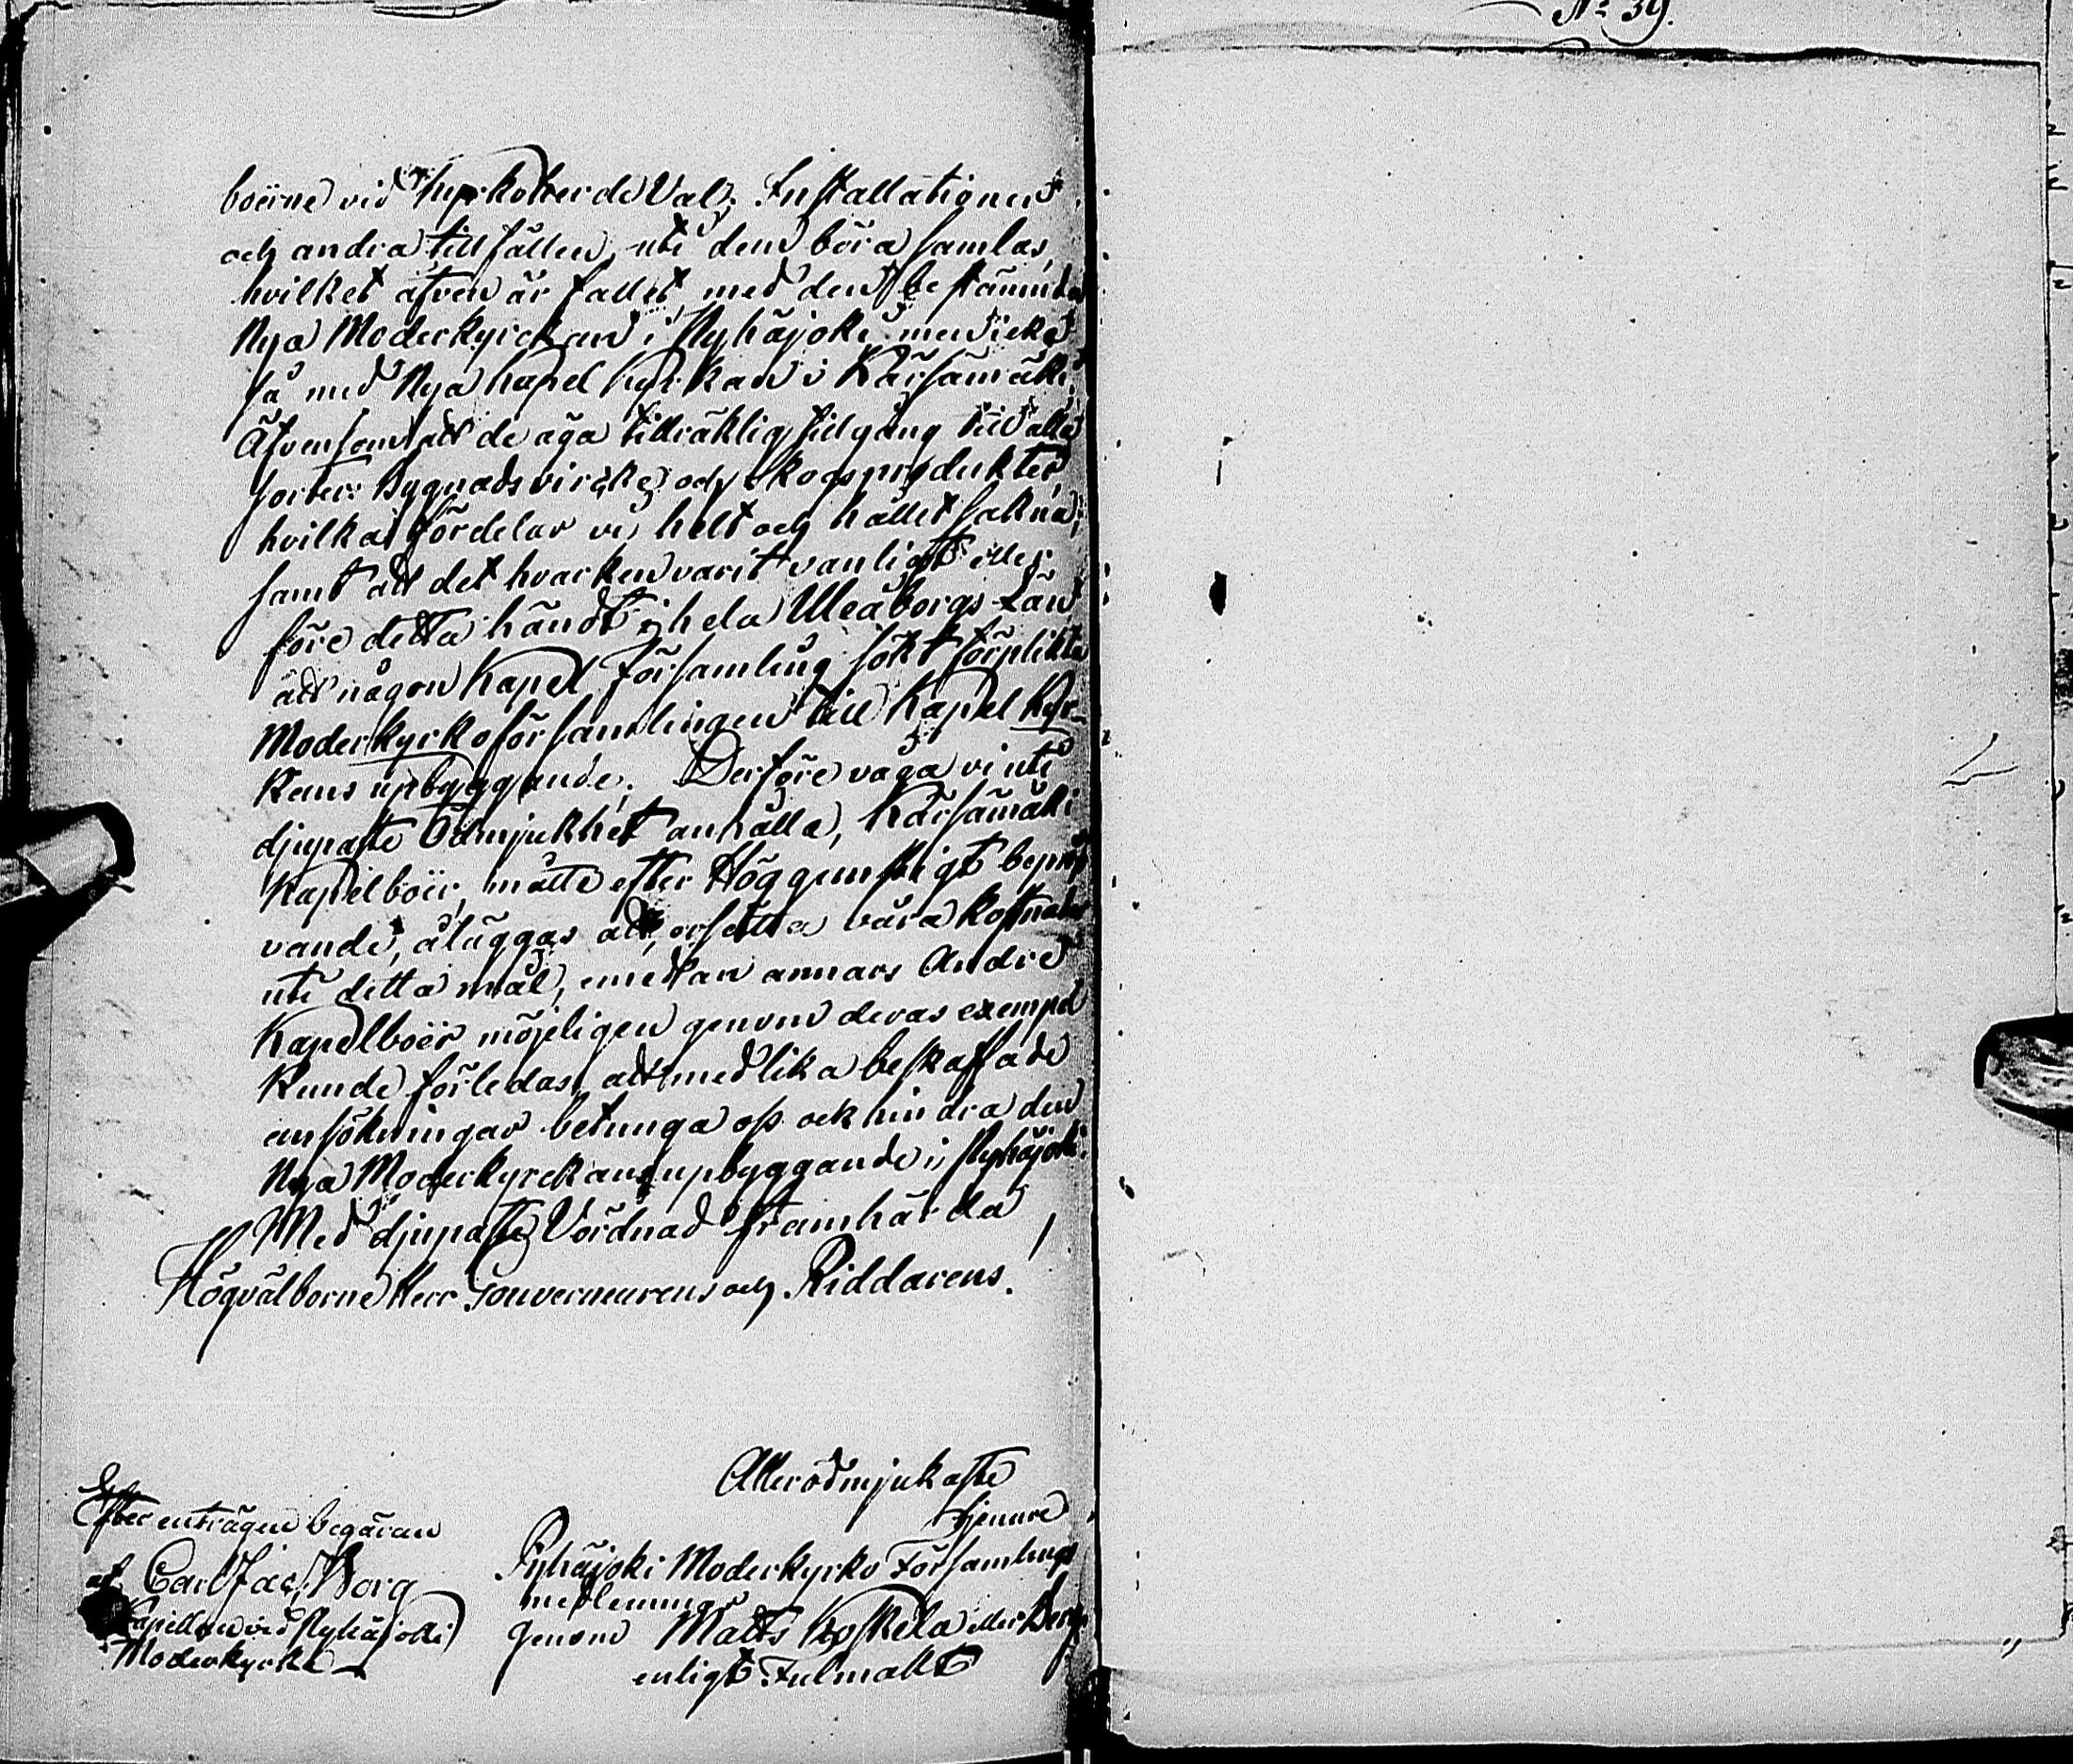 No 39.
boerne vid Kyrkoherde Val, Installationer
och andra tillfällen, uti dem böra samlas,
hvilket äfven är fallet med den bestämda
Nya Moderkyrckan i Pyhäjoki men icke
så med Nya Kapel Kyrkan i Kärsämäki;
Äfvensom att de äga tillräklig tilgång till alla
sorter Bygnadsvircke och skogsprodukter,
hvilka fördelar vi helt och hållet sakna;
samt att det hvarken varit vanligt eller
före detta händt i hela Uleåborgs Län
att någon Kapel Församling sökt förplikta
Moderkyrkoförsamlingen till Kapel Kyr-
kans upbyggande. Derföre våga vi uti
djupaste Ödmjukhet anhålla, Kärsämäki
Kapelboer, måtte efter Höggunstigt bepröf
vande, åläggas att ersätta våra kostnader
uti detta mål, emedan annars Andre
Kapelboer möjeligen genom deras exempel
kunde förledas, att med lika beskaffade
ansökningar betunga oss och hindra den
Nya Moderkyrckans upbyggande i Pyhäjoki.
Med djupaste Vördnad framhärda
Högvälborne Herr Gouverneurens och Riddarens.
Allerödmjukaste
tjenare
Efter enträgen begäran
Pyhäjoki Moderkyrko Församlings
af Carl Jac. Borg
medlemmar
Kapellan vid Pyhäjoki
genom Matts Koskela eller Berg
Moderkyrka
enligt Fulmakt